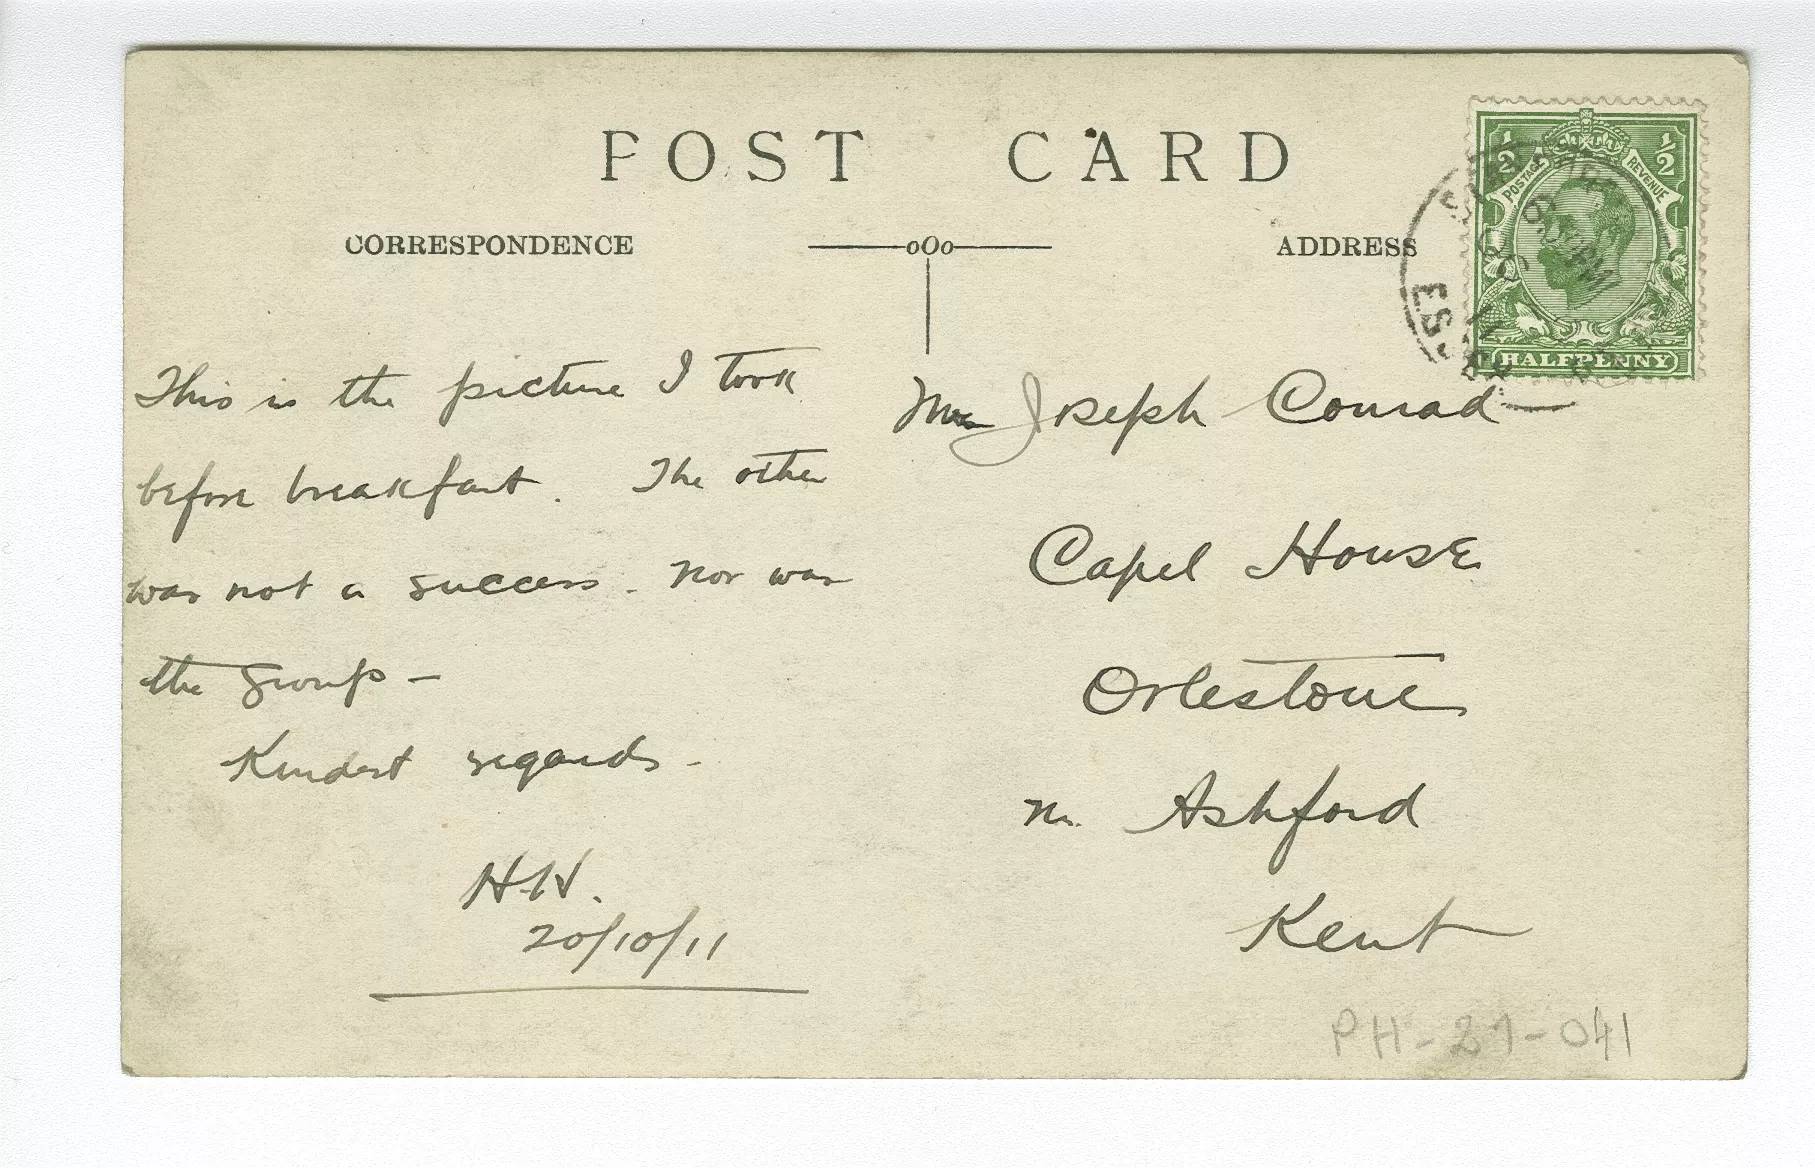 POST CARD
CORRESPONDENCE
oOo
ADDRESS
½ ½
POSTAGE REVENUE
HALFPENNY
This is the picture I took
before breakfast. The other
was not a success. Nor was
the Group —
Kindest regards.
H.H.
20/10/11
Joseph Conrad
Capel House
Orlestone
Nr. Ashford
Kent
PH-21-041